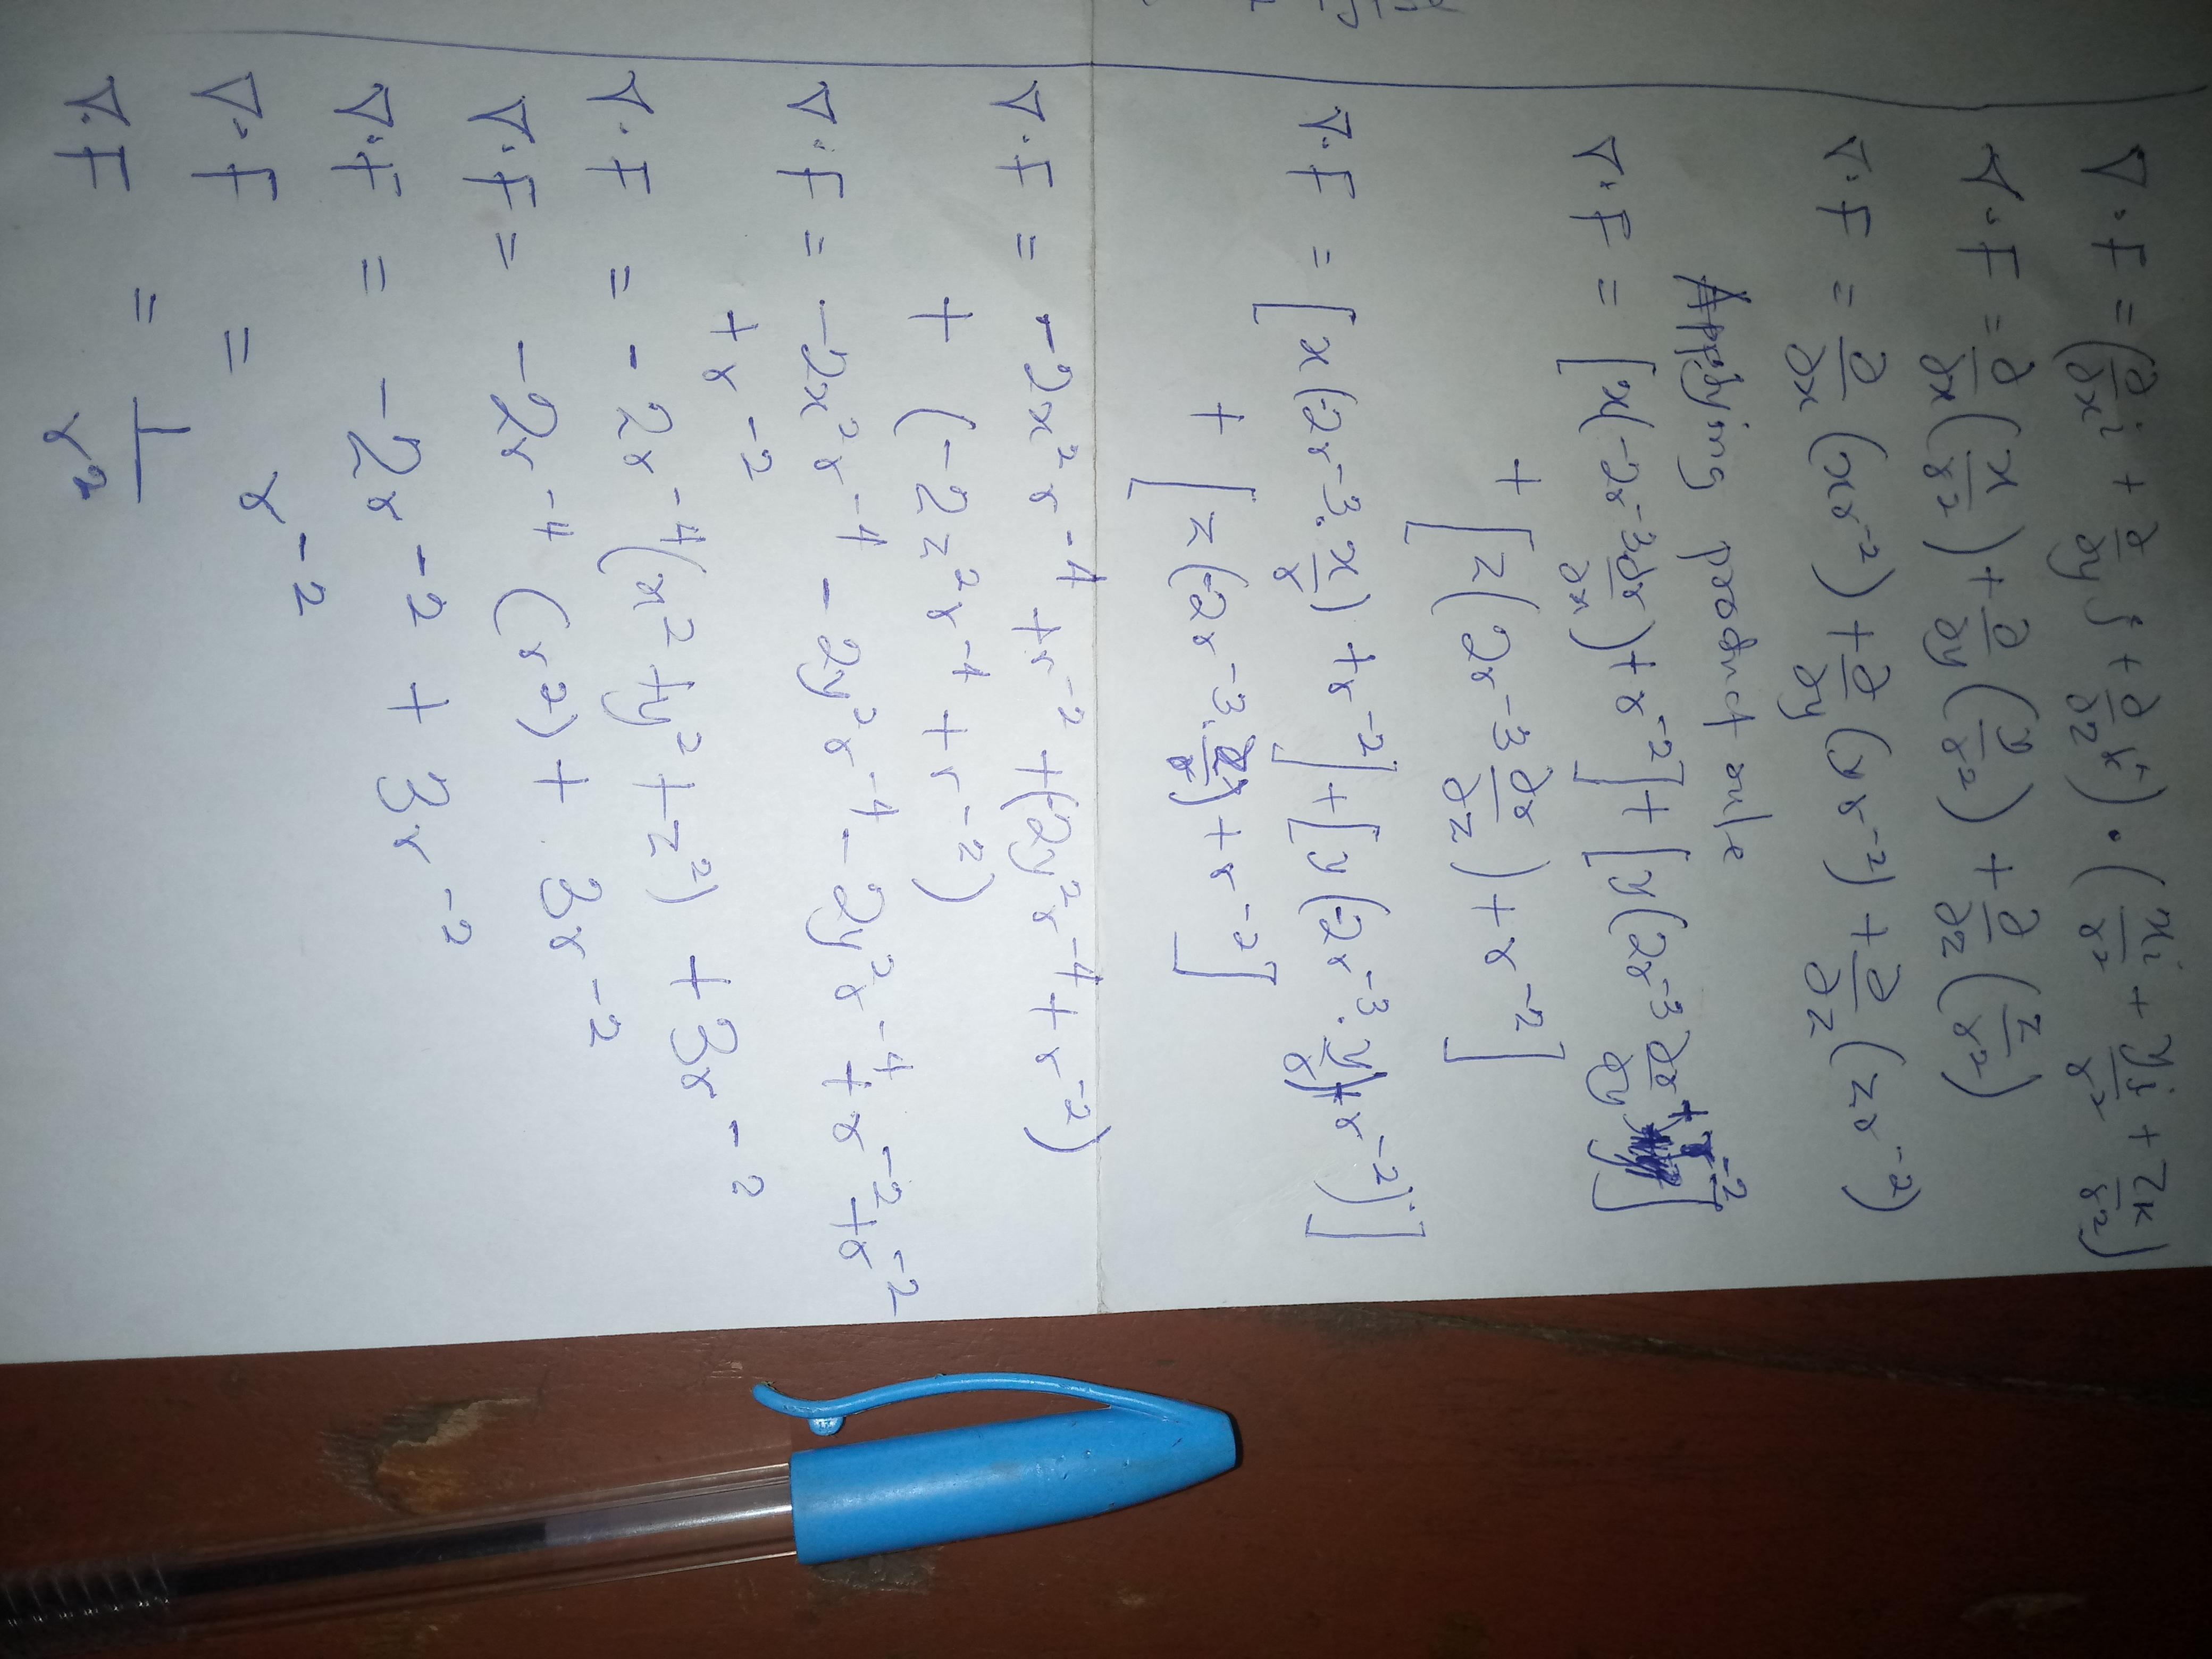 ∇·F = (∂/∂x i + ∂/∂y j + ∂/∂z k) · (xi/r² + yj/r² + zk/r²)
∇·F = ∂/∂x (x/r²) + ∂/∂y (y/r²) + ∂/∂z (z/r²)
∇·F = ∂/∂x (xr⁻²) + ∂/∂y (yr⁻²) + ∂/∂z (zr⁻²)
Applying product rule
∇·F = [x(-2r⁻³ ∂r/∂x) + r⁻²] + [y(2r⁻³ ∂r/∂y + r⁻²]
+ [z(2r⁻³ ∂r/∂z) + r⁻²]
∇·F = [x(-2r⁻³·x/r) + r⁻²] + [y(-2r⁻³·y/r) + r⁻²)]
+ [z(-2r⁻³·z/r) + r⁻²]
∇·F = -2x²r⁻⁴ + r⁻² + (-2y²r⁻⁴ + r⁻²)
+ (-2z²r⁻⁴ + r⁻²)
∇·F = -2x²r⁻⁴ - 2y²r⁻⁴ - 2y²r⁻⁴ + r⁻² + r⁻²
+ r⁻²
∇·F = -2r⁻⁴(x² + y² + z²) + 3r⁻²
∇·F = -2r⁻⁴ (r²) + 3r⁻²
∇·F = -2r⁻² + 3r⁻²
∇·F = r⁻²
∇·F = 1/r²